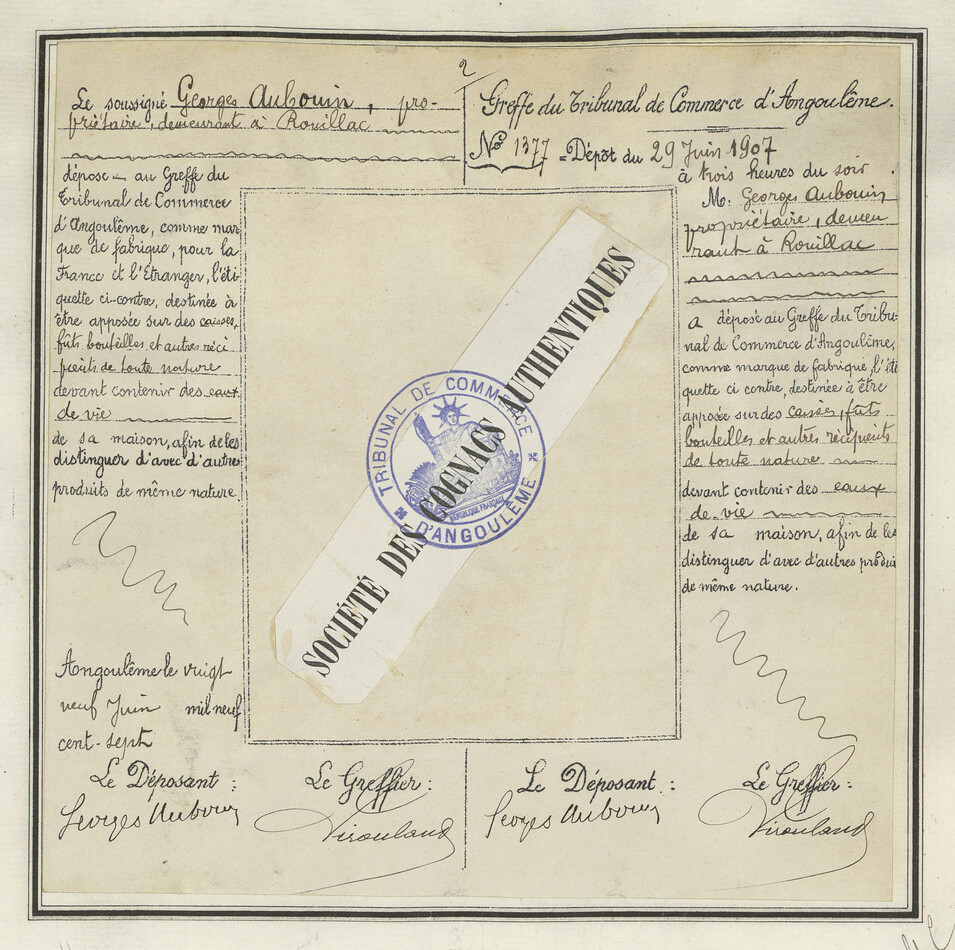 2
Le soussigné Georges Aubouin, pro-
priétaire, demeurant à Rouillac
dépose au Greffe du
Tribunal de Commerce
d'Angoulême, comme mar
que de fabrique, pour la
France et l'Étranger, l'éti
quette ci-contre, destinée à
être apposée sur des caisses,
fûts bouteilles et autres réci
pients de toute nature
devant contenir des eaux
de vie
de sa maison, afin de les
distinguer d'avec d'autres
produits de même nature.
Angoulême le vingt
neuf Juin mil neuf
cent-sept
Le Déposant :
Georges Aubouin
Le Greffier :
Virouland
SOCIÉTÉ DES COGNACS AUTHENTIQUES
TRIBUNAL DE COMMERCE
D'ANGOULÊME
RÉPUBLIQUE FRANÇAISE
Greffe du Tribunal de Commerce d'Angoulême.
No 1377 = Dépôt du 29 Juin 1907
à trois heures du soir
M. Georges Aubouin
propriétaire, demeu
rant à Rouillac
a déposé au Greffe du Tribu-
nal de Commerce d'Angoulême,
comme marque de fabrique, l'éti
quette ci contre, destinée à être
apposée sur des caisses, fûts
bouteilles et autres récipients
de toute nature
devant contenir des eaux
de vie
de sa maison, afin de les
distinguer d'avec d'autres produi
de même nature.
Le Déposant :
Georges Aubouin
Le Greffier :
Virouland